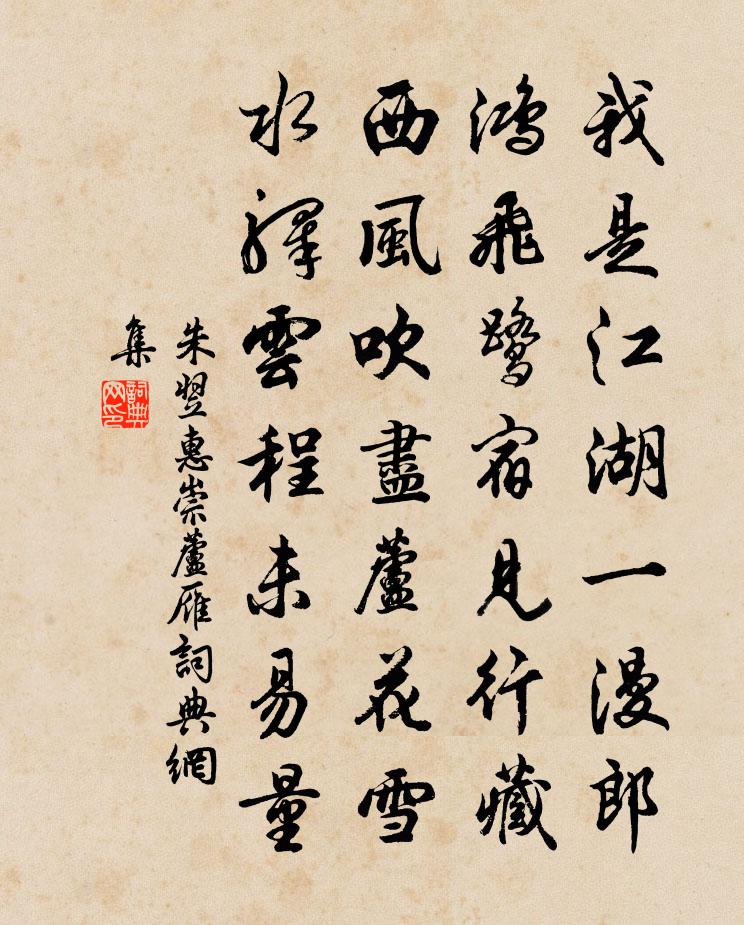 我是江湖一漫郎
鴻飛鷺宿見行藏
西風吹盡蘆花雪
水驛雲程未易量
朱翌惠崇蘆雁詞典網
集
詞典
网印